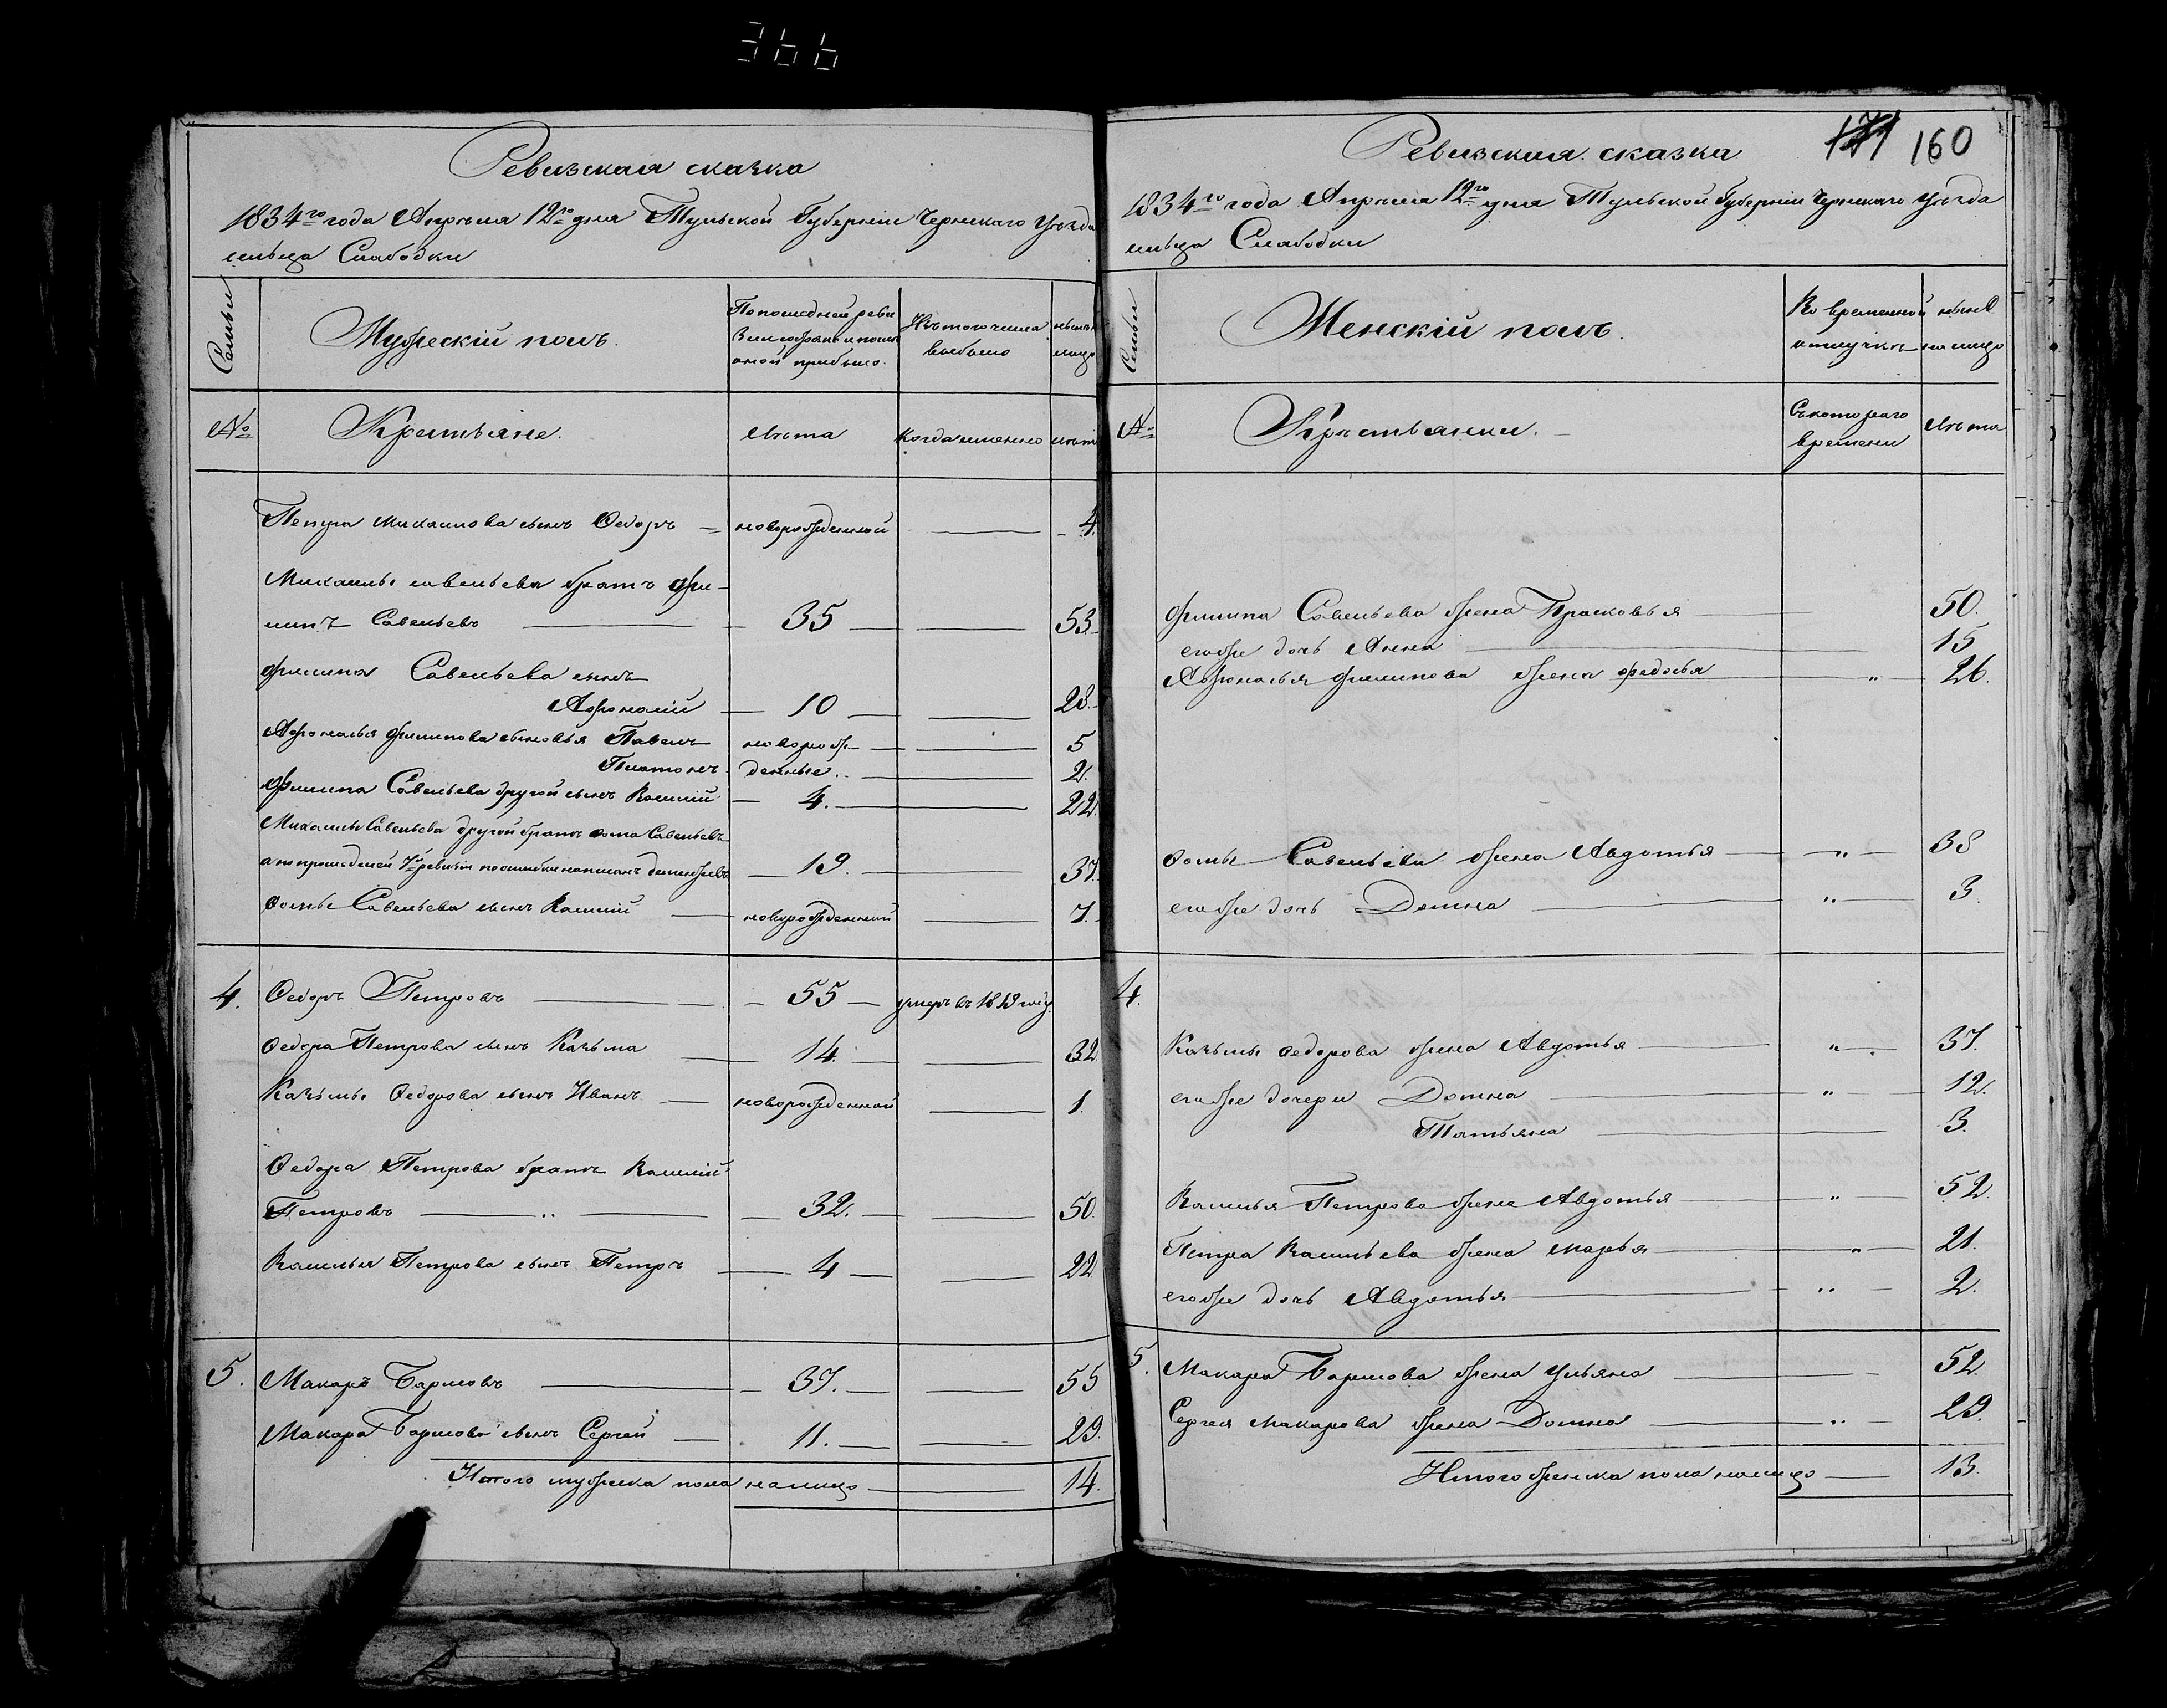 366
Ревизская сказка
1834го года Апреля 12го дня Тульской Губернiи Чернскаго уезда
сельца Слабодки
Семьи
Мужескiй полъ.
По последней реви
зiи состояло и после
оной прибыло.
Изъ того числа
выбыло
ныне на
лицо
№
Крестьяне.
Лета
Когда именно
лета
Петра михаилова сынъ Ѳедоръ новорожденной 4.
Михаилы савельева братъ Фи-
липъ Савельевъ 35 53.
Филипа Савельева сынъ
Афонасiй 10 28.
Афонасья филипова сыновья Павелъ новорож- 5
Платонъ денные.. 2.
Филипа Савельева другой сынъ Василiй 4. 22.
Михаилы Савельева другой братъ Ѳома Савельевъ
а по прошедшей 7й ревизiи по ошибки написанъ дементьевъ 19. 37.
Ѳомы Савельева сынъ Василiй новорожденный 7.
4. Ѳедоръ Петровъ 55 умеръ въ 1819 году.
Ѳедора Петрова сынъ Казьма 14. 32
Казьмы Ѳедорова сынъ Иванъ новорожденной 1.
Ѳедора Петрова братъ Василiй
Петровъ 32. 50.
Василья Петрова сынъ Петръ 4 22
5. Макаръ Барисовъ 37. 55
Макара Барисова сынъ Сергей 11. 29.
Итого мужеска пола на лицо 14.
171 160
Ревизская сказка
1834го года Апреля 12го дня Тульской Губернiи Чернскаго уезда
сельца Слабодки
Семьи
Женскiй полъ.
Во временной
отлучке
ныне
на лицо
№
Крестьянки.
Съ котораго
времени
Лета
Филипа Савельева жена Прасковья 50.
его же дочь Анна 15
Афонасья филипова жена федосья " 26.
Ѳомы Савельева жена Авдотья " 38
его же дочь Домна " 3.
4.
Казьмы Ѳедорова жена Авдотья " 37.
его же дочери Домна " 12.
Татьяна 3.
Василья Петрова жена Авдотья " 52.
Петра Васильева жена марья " 21.
его же дочь Авдотья " 2.
5. Макара Барисова жена Ульяна 52.
Сергея макарова жена Домна " 29.
Итого женска пола на лицо 13.